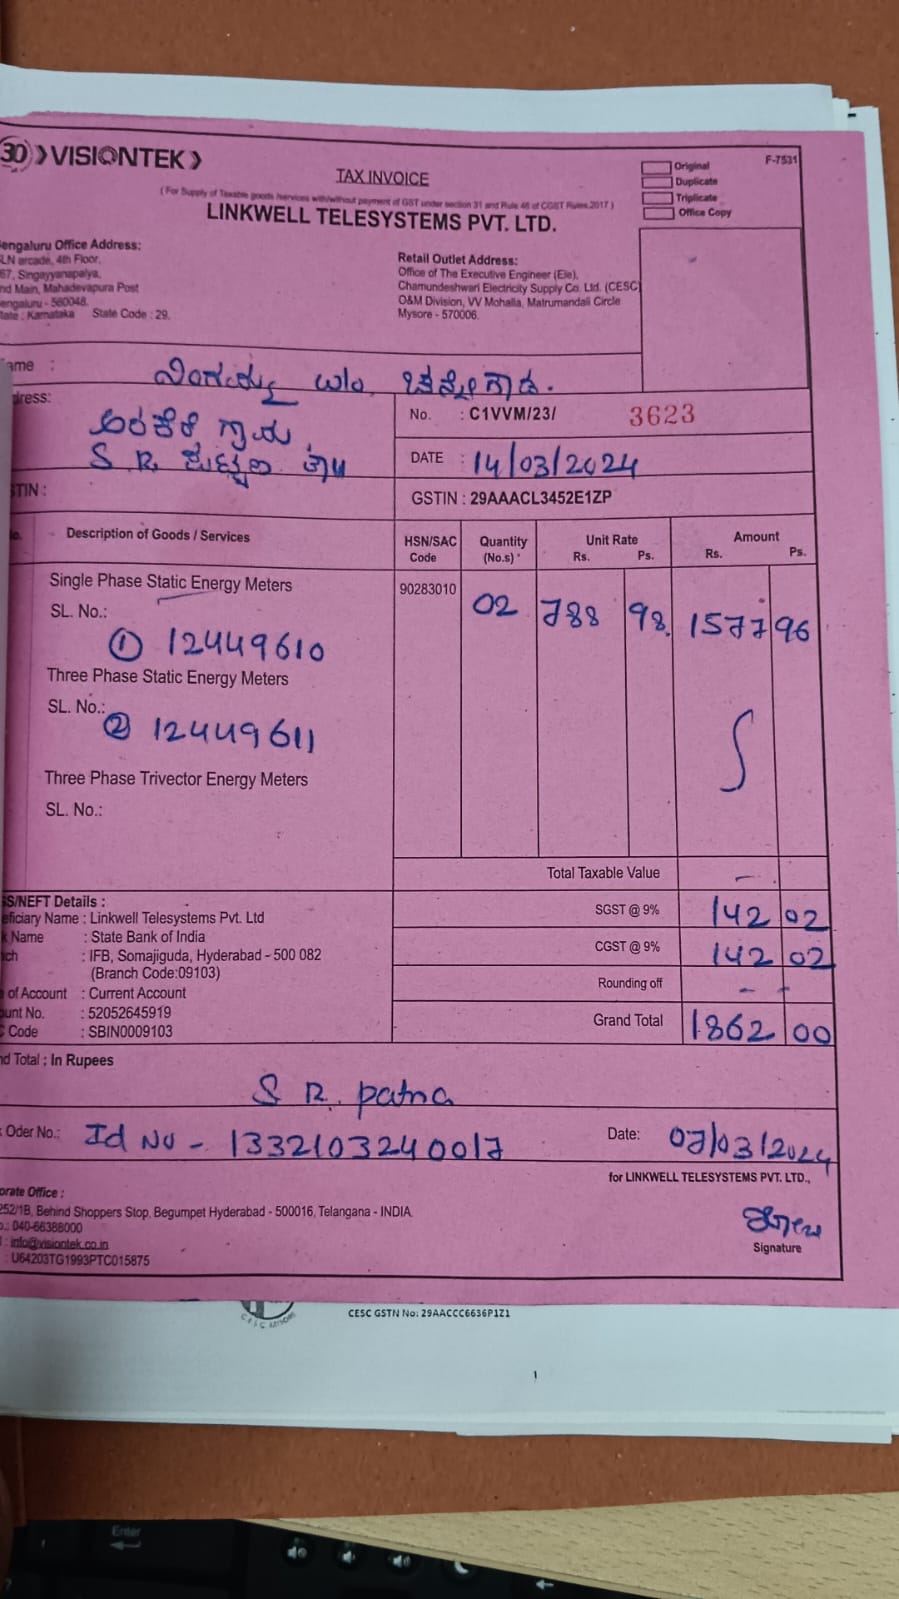 30 VISIONTEK
TAX INVOICE
( For Supply of Taxable goods /services with/without payment of GST under section 31 and Rule 46 of CGST Rules.2017 )
LINKWELL TELESYSTEMS PVT. LTD.
Original
Duplicate
Triplicate
Office Copy
F-7531
engaluru Office Address:
LN arcade, 4th Floor,
67, Singayyanapalya,
nd Main, Mahadevapura Post
engaluru - 560048.
tate : Karnataka State Code : 29.
Retail Outlet Address:
Office of The Executive Engineer (Ele),
Chamundeshwari Electricity Supply Co. Ltd. (CESC)
O&M Division, VV Mohalla, Matrumandali Circle
Mysore - 570006.
ame :
dress:
ಅರಕೆರೆ ಗ್ರಾಮ,
S. R.
No. : C1VVM/23/ 3623
DATE : 14/03/2024
TIN :
GSTIN : 29AAACL3452E1ZP
o. Description of Goods / Services HSN/SAC Code Quantity (No.s) Unit Rate Rs. Ps. Amount Rs. Ps.
Single Phase Static Energy Meters 90283010 02 788 98. 1577 96
SL. No.:
① 12449610
Three Phase Static Energy Meters
SL. No.:
② 12449611
Three Phase Trivector Energy Meters
SL. No.:
Total Taxable Value -
SGST @ 9% 142 02
CGST @ 9% 142 02
Rounding off - -
Grand Total 1862 00
S/NEFT Details :
eficiary Name : Linkwell Telesystems Pvt. Ltd
k Name : State Bank of India
ch : IFB, Somajiguda, Hyderabad - 500 082
(Branch Code:09103)
of Account : Current Account
unt No. : 52052645919
Code : SBIN0009103
nd Total : In Rupees
S R. patna
Oder No.: Id No - 1332103240017
Date: 07/03/2024
for LINKWELL TELESYSTEMS PVT. LTD.,
orate Office :
252/1B, Behind Shoppers Stop, Begumpet Hyderabad - 500016, Telangana - INDIA.
.: 040-66388000
: info@visiontek.co.in
: U64203TG1993PTC015875
Signature
CESC GSTN No: 29AACCC6636P1Z1
1
Enter